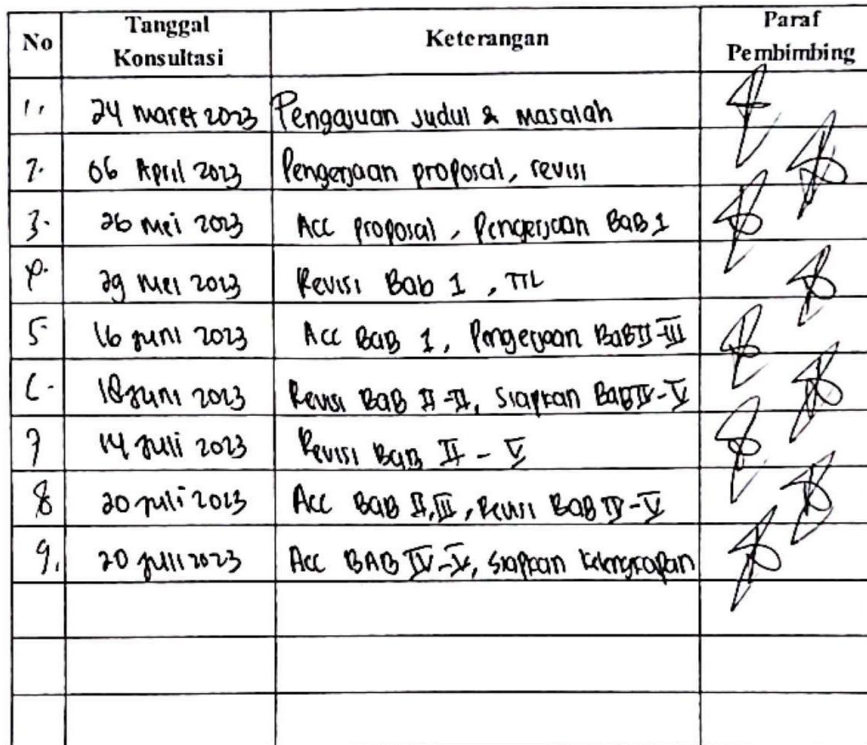 No Tanggal Konsultasi Keterangan Paraf Pembimbing
1. 24 Maret 2023 Pengajuan Judul & Masalah
2. 06 April 2023 Pengerjaan proposal, revisi
3. 26 Mei 2023 Acc proposal, Pengerjaan BAB 1
4. 29 Mei 2023 Revisi Bab 1, TTL
5. 16 Juni 2023 Acc BAB 1, Pengerjaan BAB II-III
6. 18 Juni 2023 Revisi BAB II-III, Siapkan BAB IV-V
7 14 Juli 2023 Revisi Bab II - V
8 20 Juli 2023 Acc BAB II, III, Revisi BAB IV-V
9. 20 Juli 2023 Acc BAB IV-V, Siapkan Kelengkapan